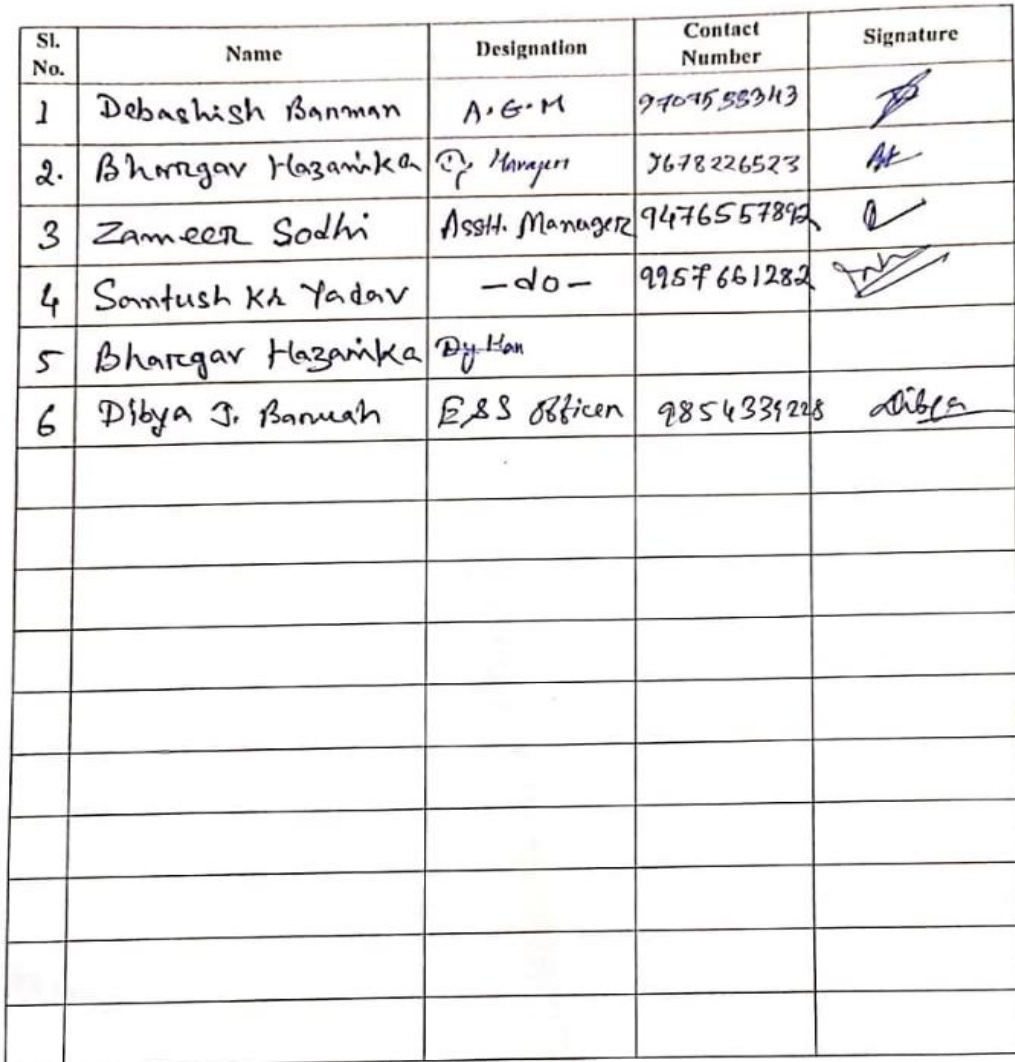 Sl. No. Name Designation Contact Number Signature
1 Debashish Barman A.G.M 9707558343
2. Bhargav Hazarika Dy Manager 9678226523
3 Zameer Sodhi Asstt. Manager 9476557892
4 Santush Kr Yadav -do- 9957661282
5 Bhargav Hazarika Dy Man
6 Dibya J. Baruah E&S Officer 9854339228 Dibya